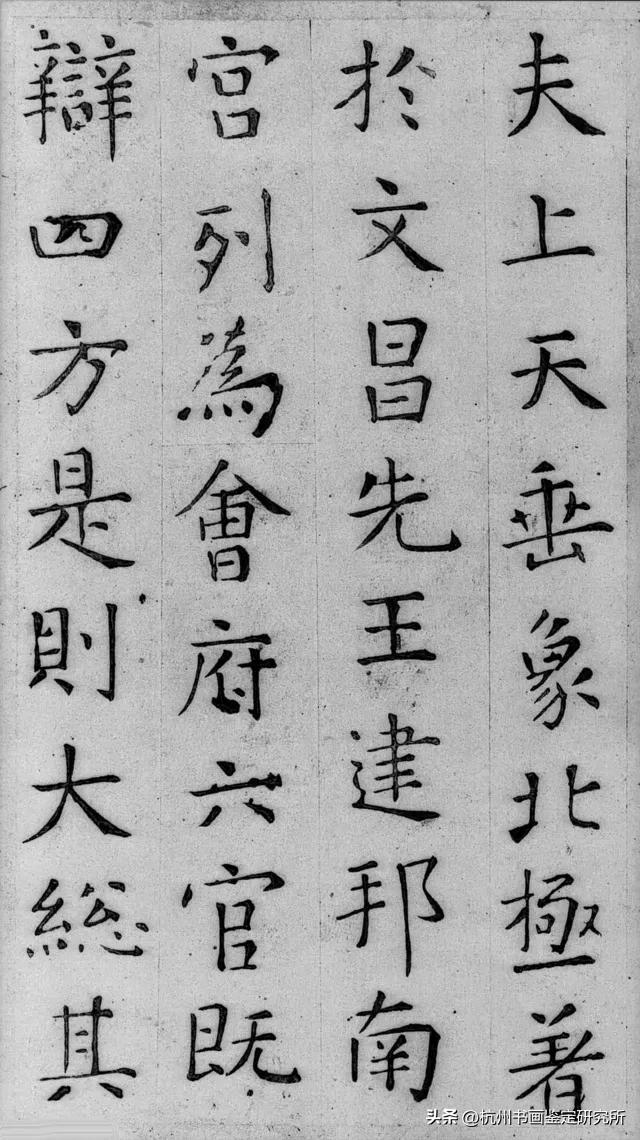 夫上天垂象北極著
於文昌先王建邦南
宮列為會府六官既
辯四方是則大總其
头条 @杭州书画鉴定研究所